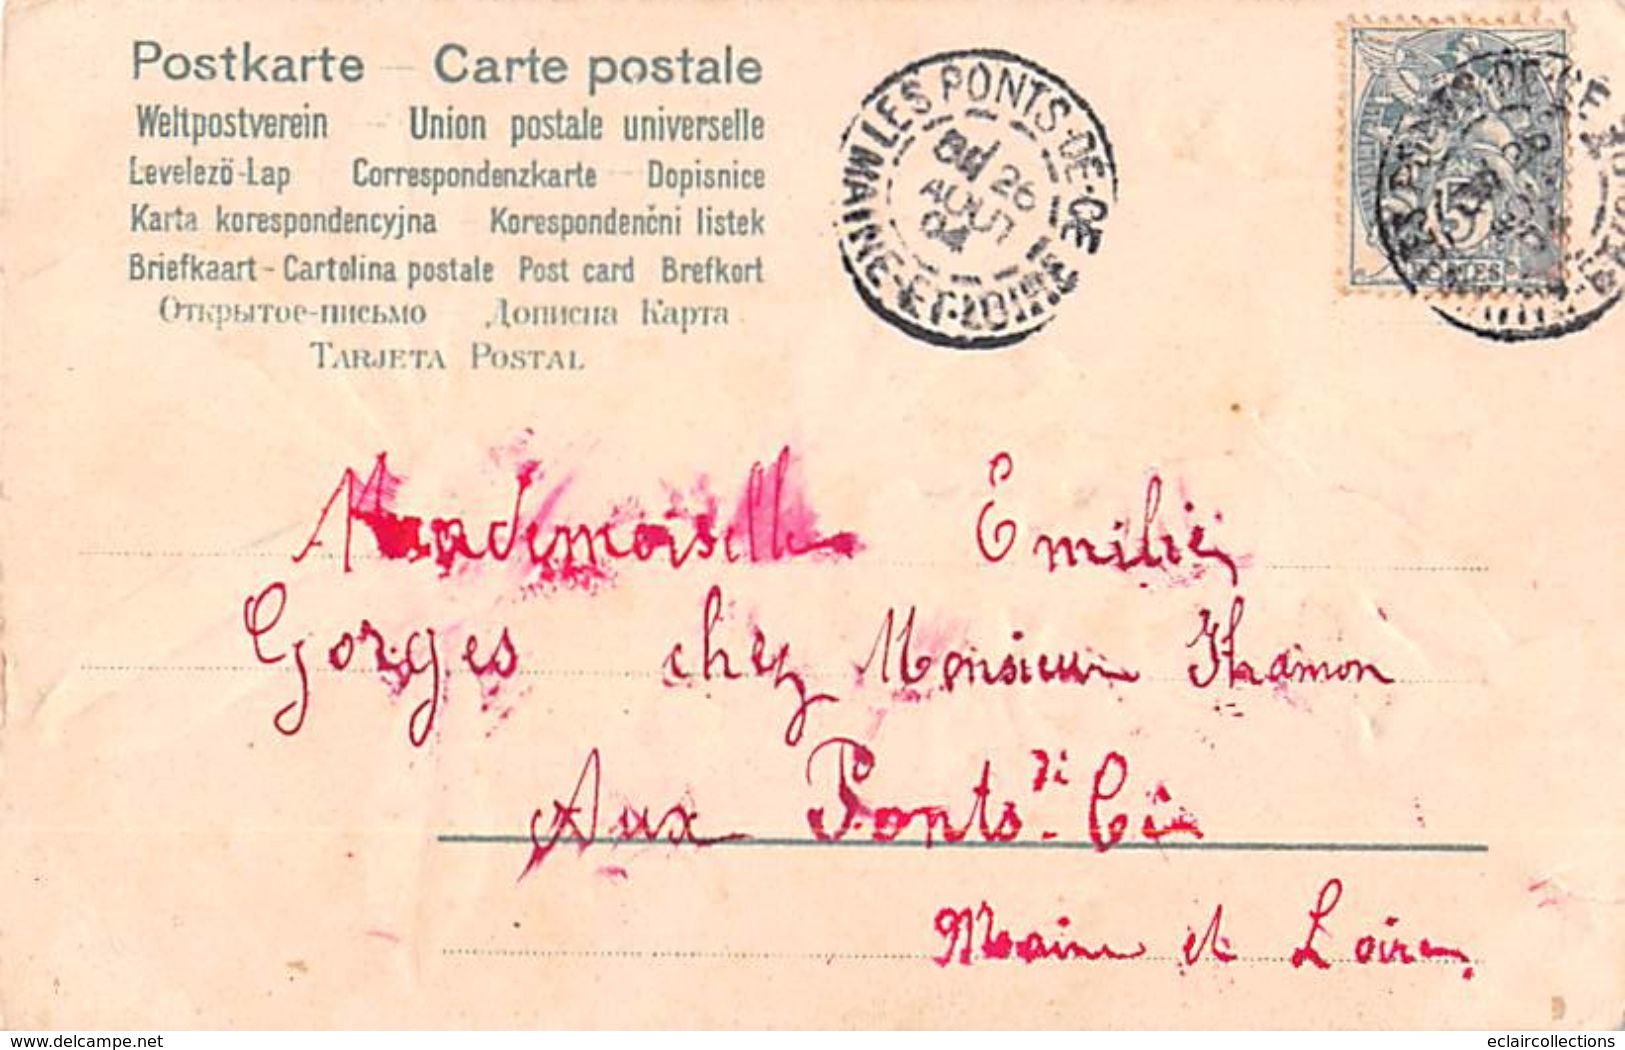 Postkarte – Carte postale
Weltpostverein – Union postale universelle
Levelező-Lap Correspondenzkarte – Dopisnice
Karta korespondencyjna – Korespondenční listek
Briefkaart – Cartolina postale Post card Brefkort
Открытое-письмо Дописна Карта
Tarjeta Postal
LES PONTS-DE-CÉ
26
AOUT
04
MAINE-ET-LOIRE
5
Mademoiselle Emilie
Gorges chez Monsieur
Aux Ponts di Cé
Maine et Loire
www.delcampe.net
eclaircollections